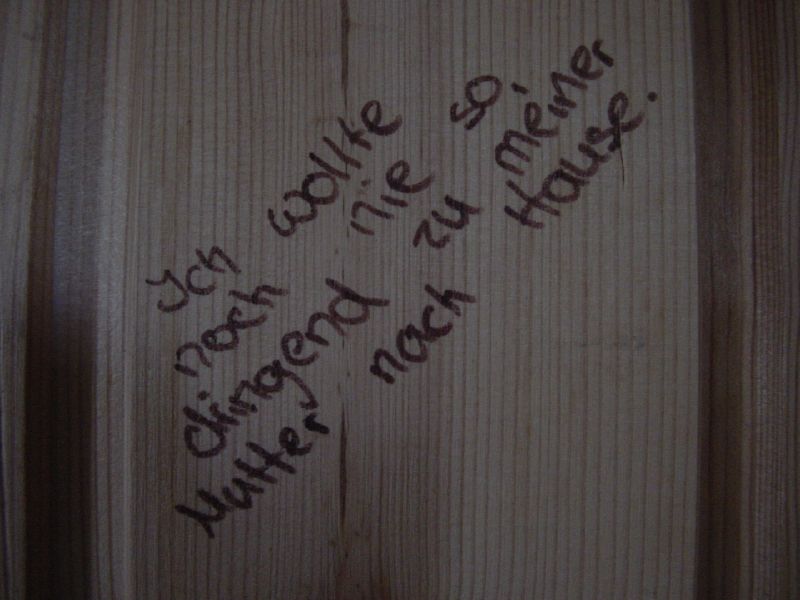 Ich wollte
noch nie so
dingend zu meiner
Mutter nach Hause.